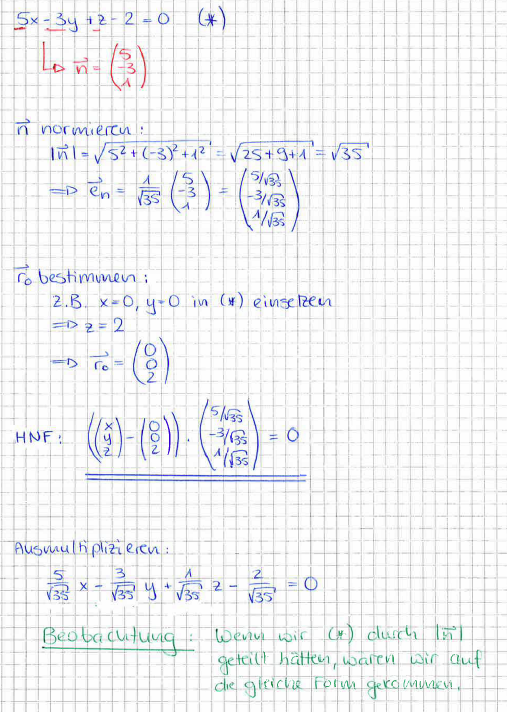 5x - 3y + z - 2 = 0 (*)
↳ n⃗ = (5 -3 1)
n⃗ normieren:
|n⃗| = √5² + (-3)² + 1² = √25 + 9 + 1 = √35
⇒ e⃗n = 1/√35 (5 -3 1) = (5/√35 -3/√35 1/√35)
r⃗₀ bestimmen:
z.B. x=0, y=0 in (*) einsetzen
⇒ z = 2
⇒ r⃗₀ = (0 0 2)
HNF: ((x y z) - (0 0 2)) · (5/√35 -3/√35 1/√35) = 0
Ausmultiplizieren:
5/√35 x - 3/√35 y + 1/√35 z - 2/√35 = 0
Beobachtung: Wenn wir (*) durch |n⃗|
geteilt hätten, wären wir auf
die gleiche Form gekommen.